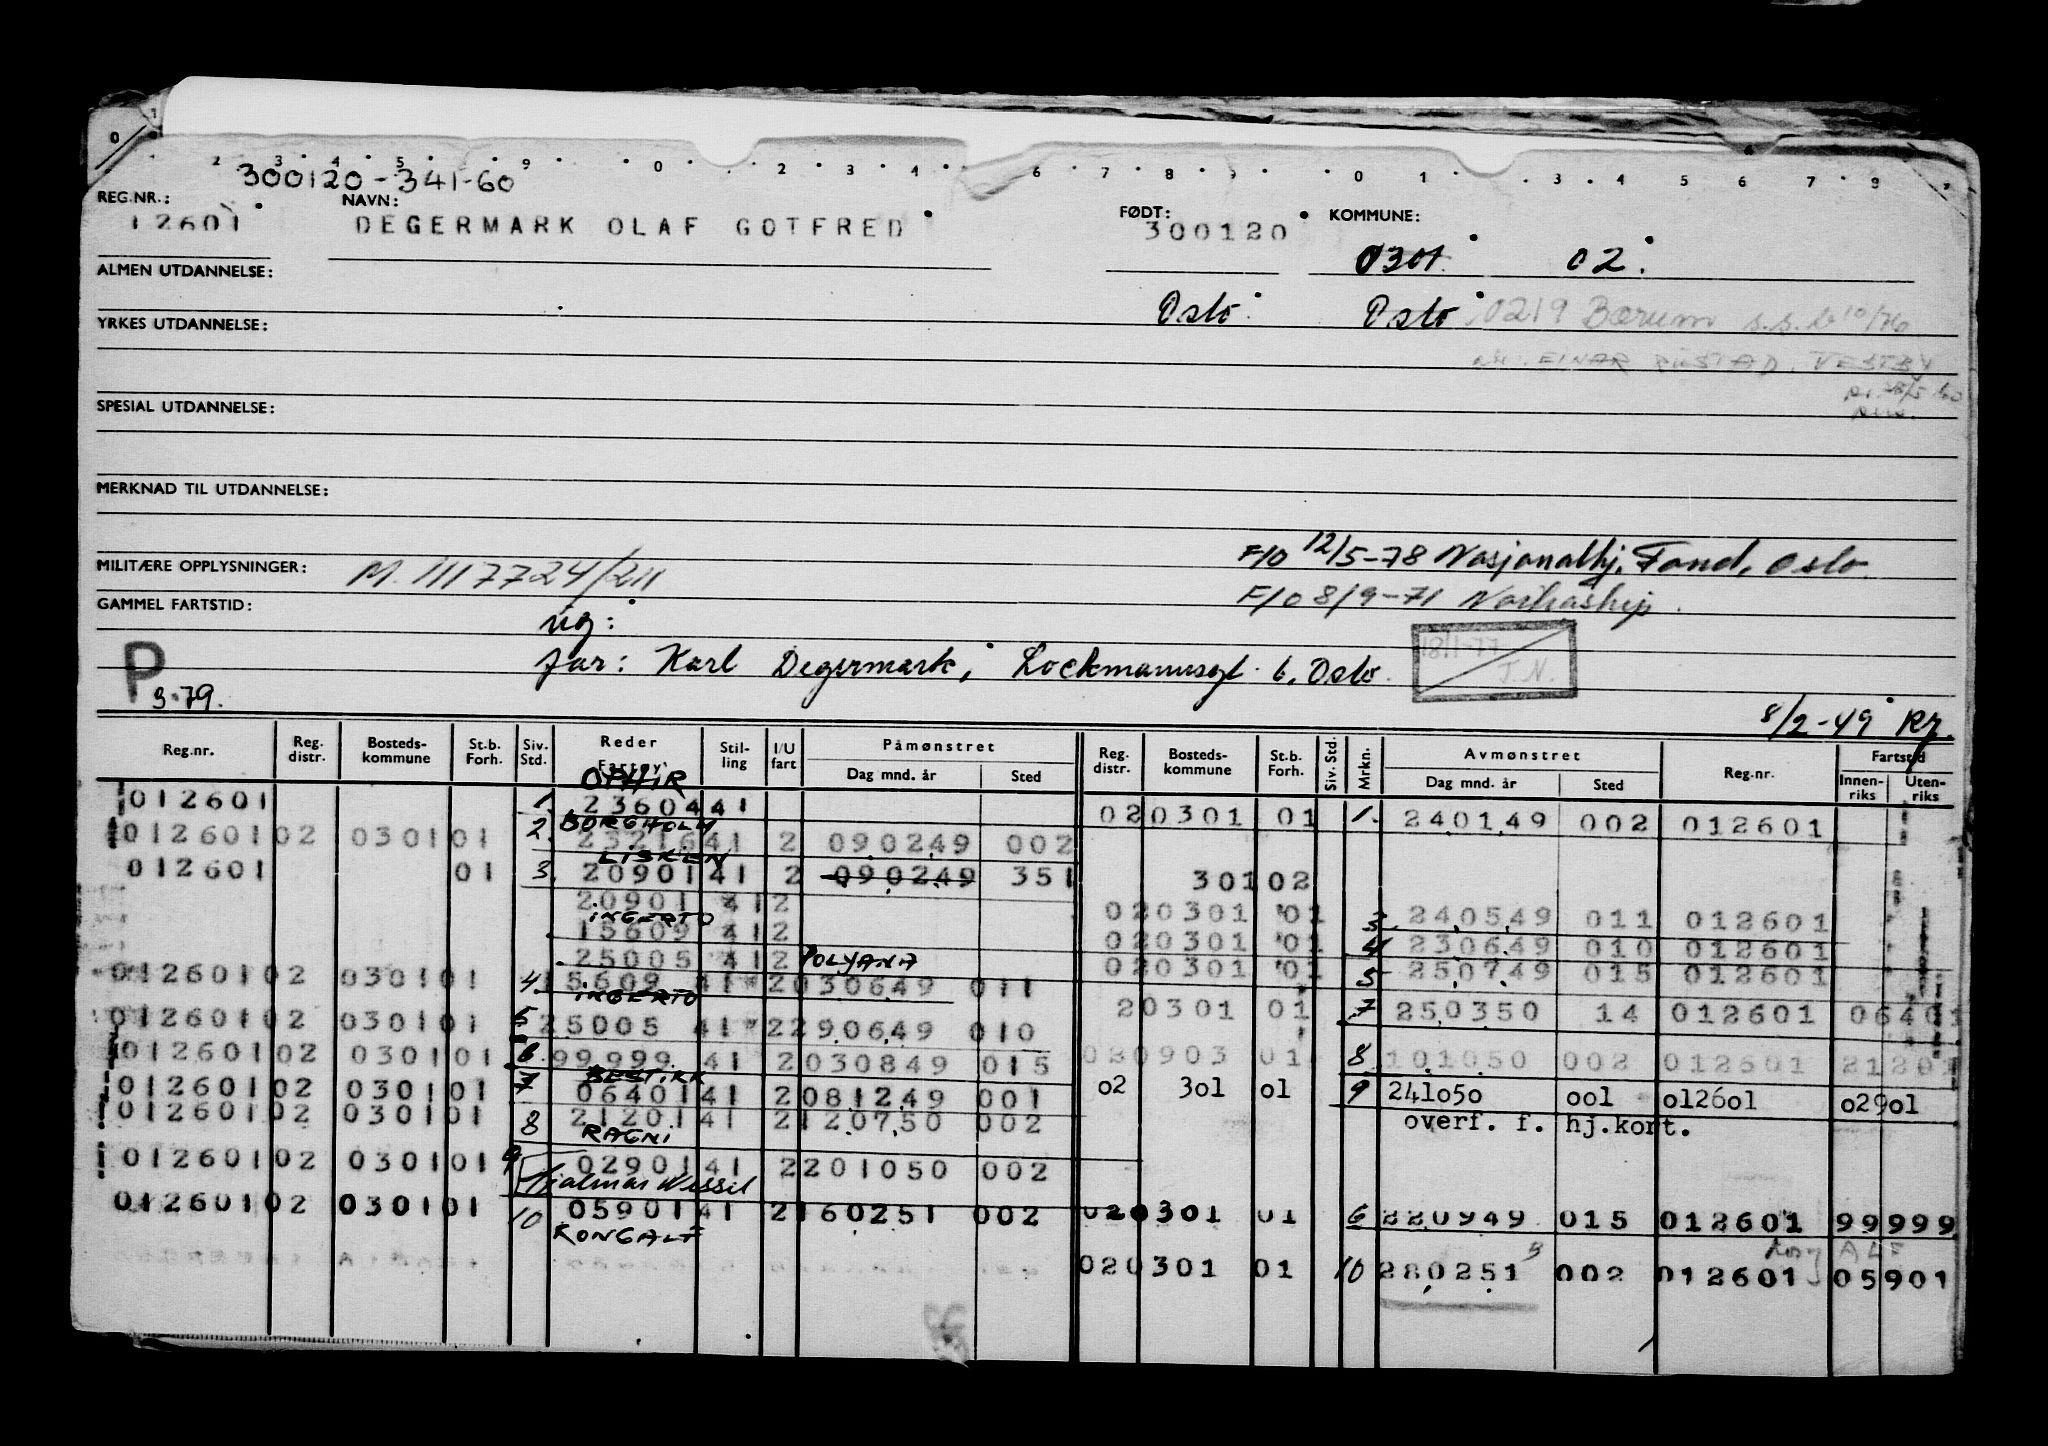 300120-341-60
REG.NR.: NAVN: FØDT: KOMMUNE:
12601 DEGERMARK OLAF GOTFRED 300120
0301. 02.
ALMEN UTDANNELSE:
Oslo Oslo 0219 Bærum
YRKES UTDANNELSE:
EINAR VESTBY
SPESIAL UTDANNELSE:
MERKNAD TIL UTDANNELSE:
F/O 12/5-78 Nasjonalhj. Fond, Oslo
MILITÆRE OPPLYSNINGER: M. 1117724/211
F/O 8/9-71 Nortraship.
GAMMEL FARTSTID:
ug:
far: Karl Degermark, Lockmannsgt. 6, Oslo. 18/1-77
J.N.
P
3-79.
8/2-49
Reg.nr. Reg. distr. Bosteds-kommune St.b. Forh. Siv. Std. Reder Stil-ling I/U fart Påmønstret Dag mnd. år Sted Reg. distr. Bosteds-kommune St.b. Forh. Siv. Std. Mrkn. Avmønstret Dag mnd. år Sted Reg.nr. Fartstid Innen-riks Uten-riks
OPHIR
012601 1. 23604 41 020301 01 1. 240149 002 012601
BORGHOLM
012601 02 0301 01 2. 23216 41 2 090249 002
LISKEN
012601 01 3. 20901 41 2 090249 351 301 02
20901 41 2 020301 01 3 240549 011 012601
INGERTO
15609 41 2 020301 01 4 230649 010 012601
25005 41 2 POLYANA 020301 01 5 250749 015 012601
012601 02 0301 01 4. 15609 41 2 030649 011
INGERTO
20301 01 7 250350 14 012601 06401
012601 02 0301 01 5 25005 41 2 290649 010
012601 02 0301 01 6. 99999 41 2 030849 015 020903 01 8 101050 002 012601 21201
BESTIKK
012601 02 0301 01 7 06401 41 2 081249 001 o2 3o1 o1 9 241o5o oo1 o126o1 o29o1
012601 02 0301 01 8 21201 41 2 120750 002 overf. f. hj.kort.
RAGNI
012601 02 0301 01 9 02901 41 2 201050 002
Hjalmar Wessel
012601 02 0301 01 10 05901 41 2 160251 002 020301 01 6 220949 015 012601 99999
KONGALF
Kong ALF
020301 01 10 280251 002 012601 05901